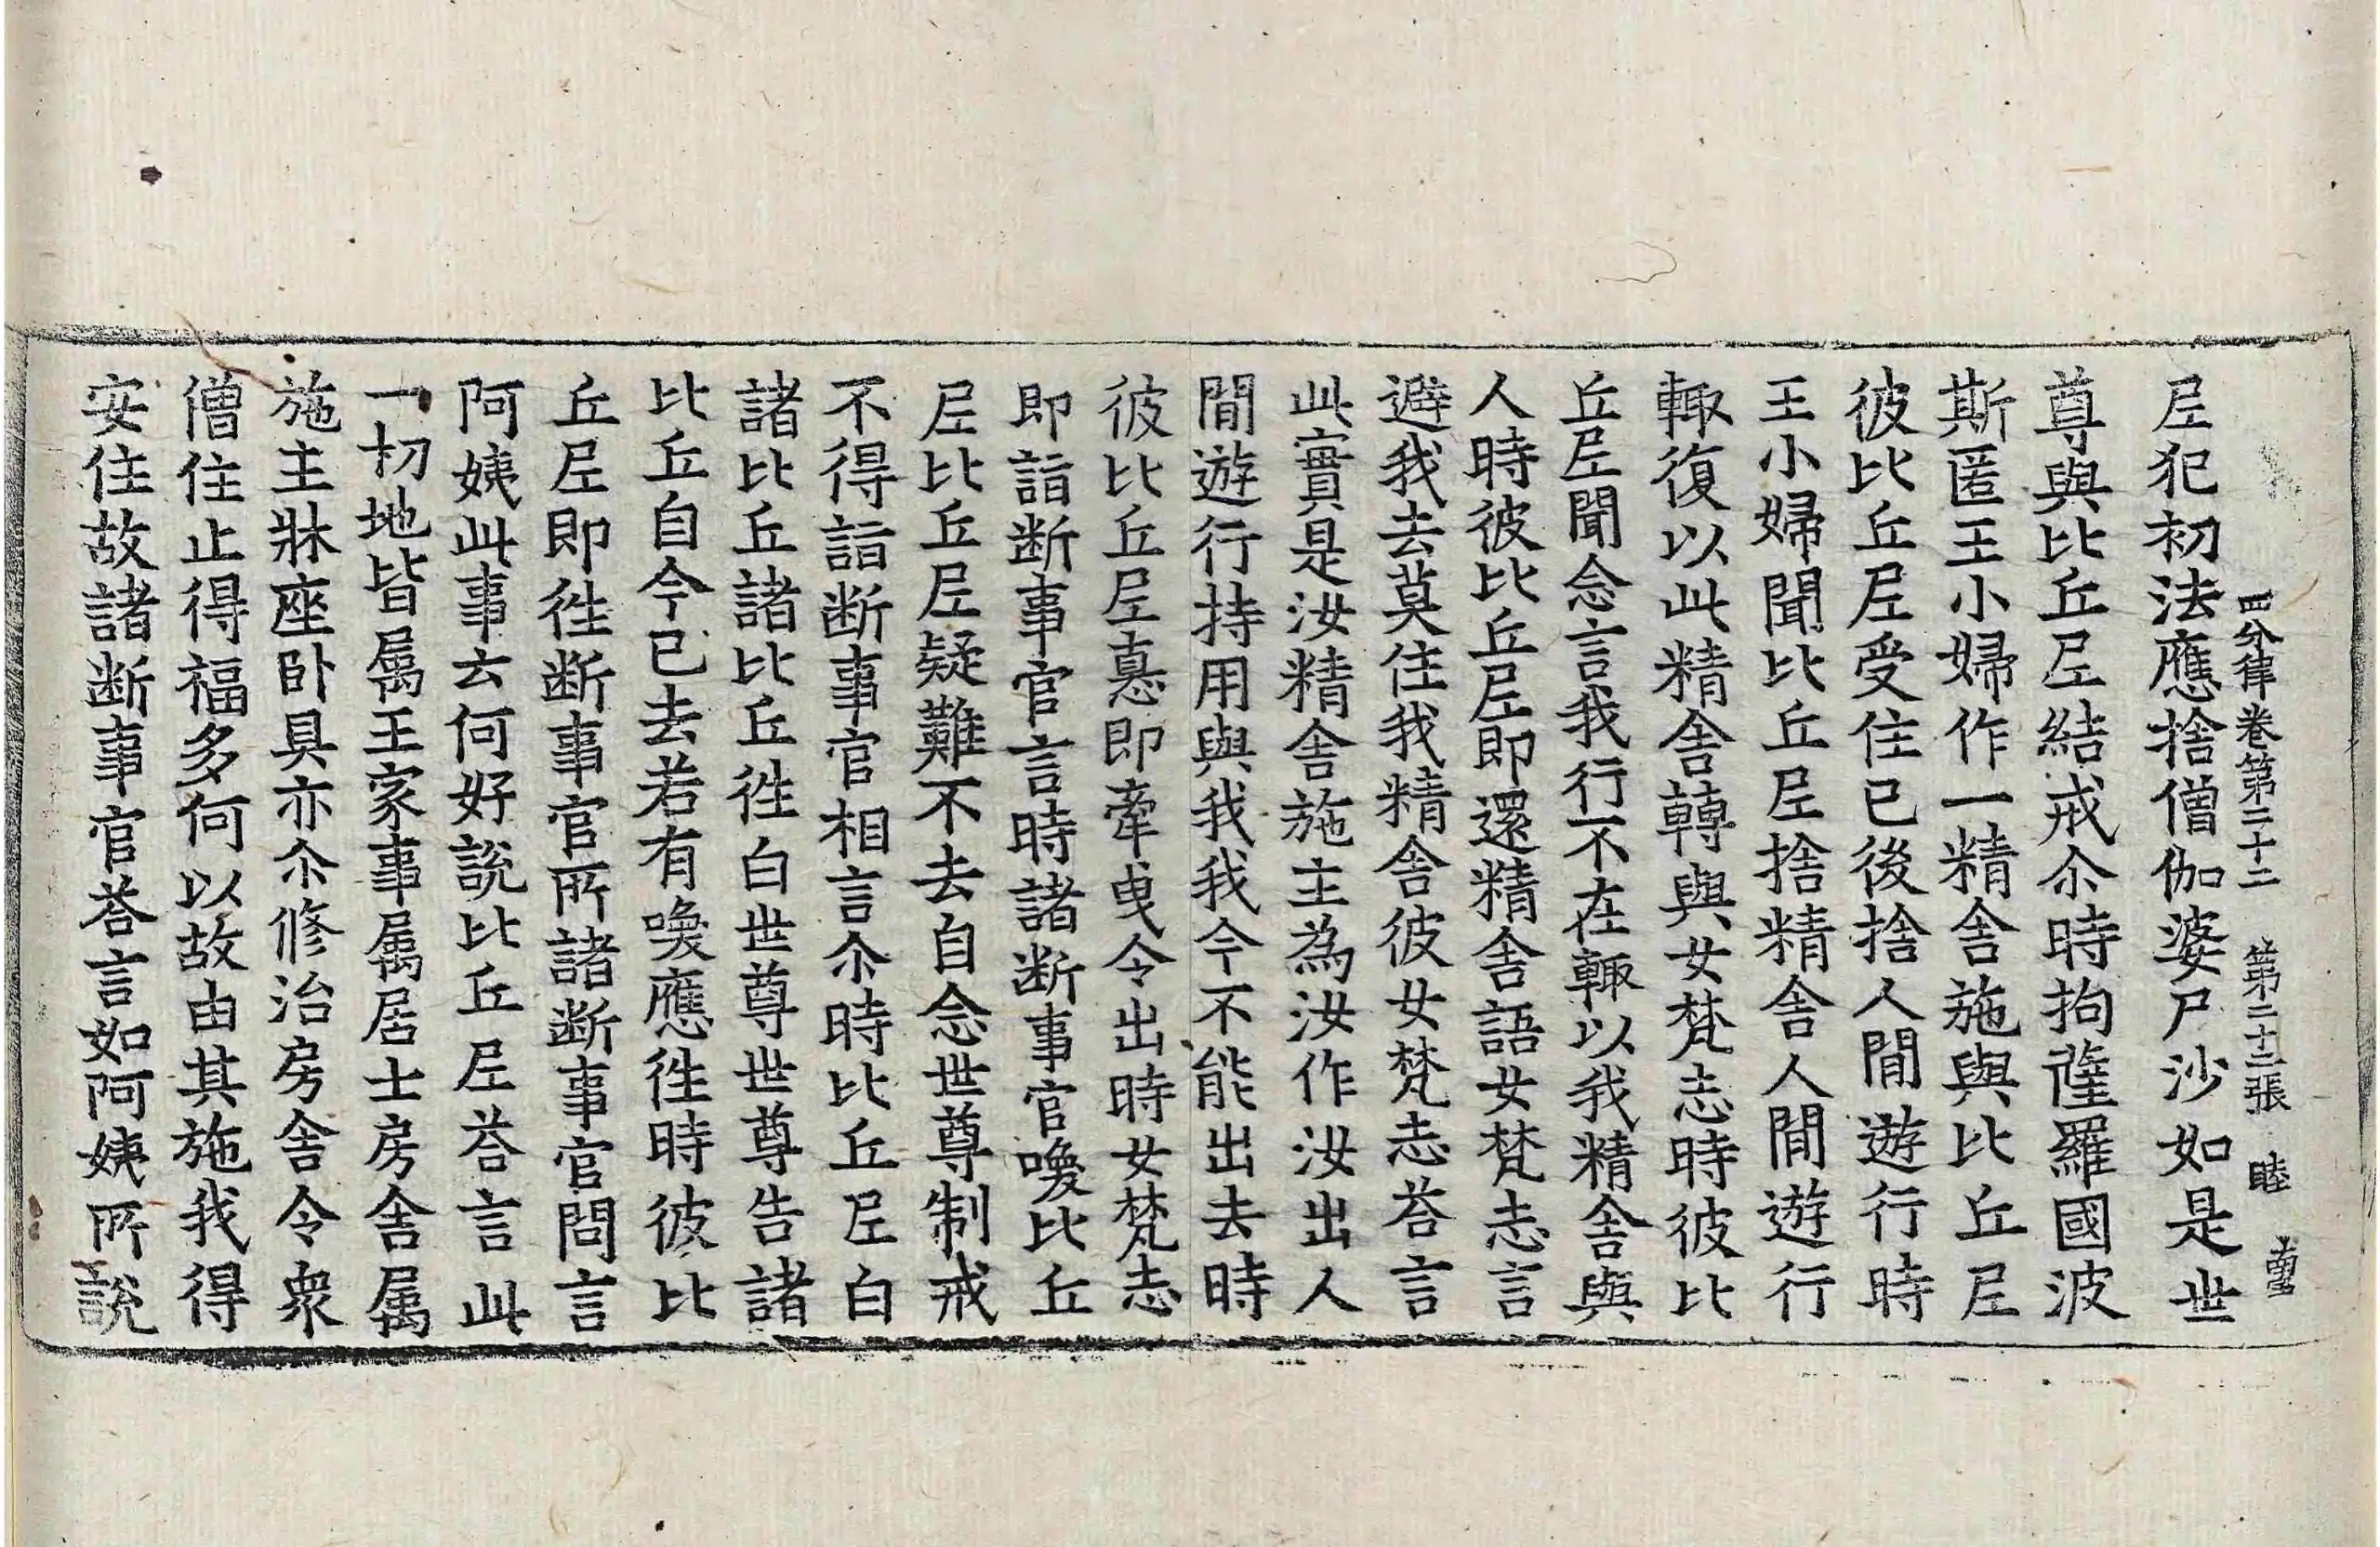 四分律卷第二十二　第二十二張　睦
𡰱犯初法應捨僧伽婆尸沙如是世
尊與比丘𡰱結戒尒時拘薩羅國波
斯匿王小婦作一精舍施與比丘𡰱
彼比丘𡰱受住已後捨人間遊行時
王小婦聞比丘𡰱捨精舍人間遊行
輙復以此精舍轉與女梵志時彼比
丘𡰱聞念言我行不在輙以我精舍與
人時彼比丘𡰱即還精舍語女梵志言
避我去莫住我精舍彼女梵志荅言
此實是汝精舍施主為汝作汝出人
間遊行持用與我我今不能出去時
彼比丘𡰱恚即牽曳令出時女梵志
即詣断事官言時諸断事官喚比丘
𡰱比丘𡰱疑難不去自念世尊制戒
不得詣断事官相言尒時比丘𡰱白
諸比丘諸比丘徃白世尊世尊告諸
比丘自今已去若有喚應徃時彼比
丘𡰱即徃断事官所諸断事官問言
阿姨此事云何好說比丘𡰱荅言此
一切地皆属王家事属居士房舍属
施主牀座卧具亦尒修治房舍令衆
僧住止得福多何以故由其施我得
安住故諸断事官荅言如阿姨所說